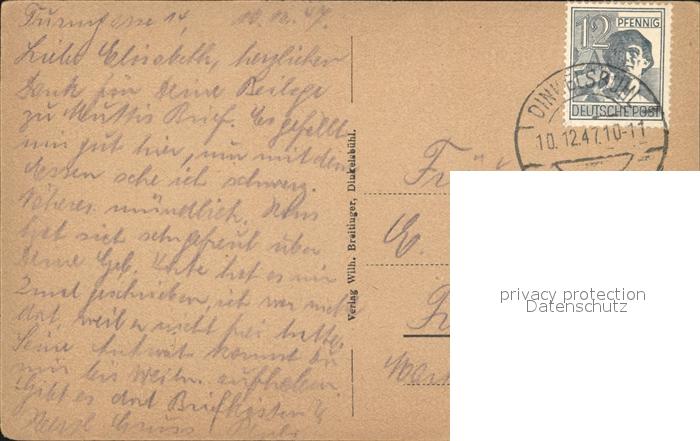 Turmgasse 14, 10.12.47.
Liebe Elisabeth, herzlichen
Dank für Deine Beilage
zu Muttis Brief. Es gefällt
mir gut hier, nur mit dem
Essen sehe ich schwarz.
Näheres mündlich. Hans
hat sich sehr gefreut über
Deine Geb. Karte hat es mir
2mal geschrieben, ich war nicht
dort, weil er nicht frei hatte.
Seine Antwort kannst Du
mir bis Weihn. aufheben.
Gibt es dort Briefkästen?
Herzl. Gruss
Verlag Wilh. Breitinger, Dinkelsbühl.
12 PFENNIG
DEUTSCHE POST
DINKELSBÜHL
10.12.47.10-11
E.
privacy protection
Datenschutz